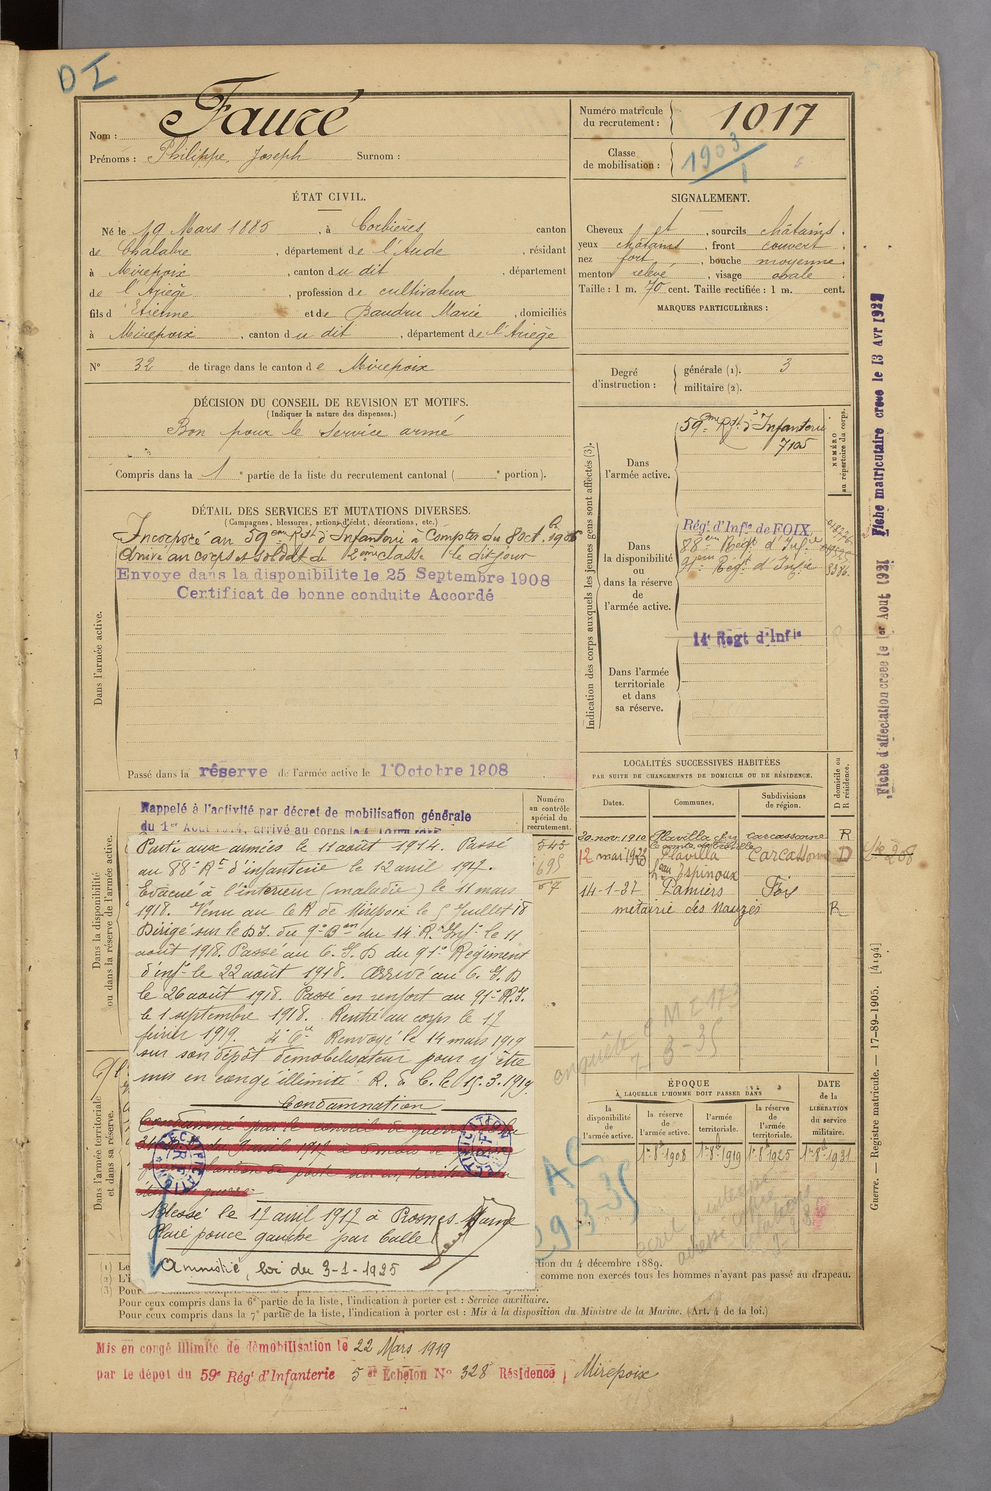 DI
Nom : Fauré
Prénoms : Philippe, Joseph Surnom :
Numéro matricule
du recrutement : 1017
Classe
de mobilisation : 1903
1
ÉTAT CIVIL.
Né le 19 Mars 1885, à Corbières, canton
de Chalabre, département de l'Aude, résidant
à Mirepoix, canton du dit, département
de l'Ariège, profession de cultivateur
fils d'Etienne et de Dandru Marie, domiciliés
à Mirepoix, canton du dit, département de l'Ariège
N° 32 de tirage dans le canton de Mirepoix
SIGNALEMENT.
Cheveux et, sourcils châtains.
yeux châtains, front couvert
nez fort, bouche moyenne
menton relevé, visage ovale
Taille : 1 m. 70 cent. Taille rectifiée : 1 m. cent.
MARQUES PARTICULIÈRES :
Degré
d'instruction :
générale (1). 3
militaire (2).
DÉCISION DU CONSEIL DE REVISION ET MOTIFS.
(Indiquer la nature des dispenses.)
Bon pour le service armé
Compris dans la 1e partie de la liste du recrutement cantonal ( e portion).
DÉTAIL DES SERVICES ET MUTATIONS DIVERSES.
(Campagnes, blessures, actions d'éclat, décorations, etc.)
Incorporé au 59eme Regt d'Infanterie à Compter du 8 octbre 1906
Arrivé au corps et soldat de 2eme classe le dit jour
Envoye dans la disponibilite le 25 Septembre 1908
Certificat de bonne conduite Accordé
Dans l'armée active.
Passé dans la réserve de l'armée active le 1 Octobre 1908
Indication des corps auxquels les jeunes gens sont affectés (3).
NUMÉRO
au répertoire du corps.
Dans
l'armée active.
59eme Rgt d'Infanterie
7105
Dans
la disponibilité
ou
dans la réserve
de
l'armée active.
Régt d'Infie de FOIX
88eme Regt d'Infie
91eme Regt d'Infie
Dans l'armée
territoriale
et dans
sa réserve.
14e Regt d'Infie
Fiche matriculaire créée le 13 Avr 1922
Fiche d'affectation créée le 1er Aout 1931
Dans la disponibilité
ou dans la réserve de l'armée active.
Rappelé à l'activité par décret de mobilisation générale
du 1er Août 1914, arrivé au corps le
Numéro
au contrôle
spécial du
recrutement.
545
695
Parti aux armées le 11 août 1914. Passé
au 88e Rt d'infanterie le 12 avril 1917.
Evacué à l'intérieur (maladie) le 11 mars
1918. Venu au le R de Mirepoix le 5 Juillet 18
Dirigé sur le DI. du 9e Bon du 14 R. Inf. le 11
août 1918. Passé au C.I.D du 91e Régiment
d'inf. le 22 août 1918. Arrivé au C.I.D
le 26 août 1918. Passé en renfort au 91e R.I.
le 1 septembre 1918. Rentré au corps le 17
février 1919. Renvoyé le 14 mars 1919
sur son dépôt démobilisateur pour y être
mis en congé illimité. R. d. C. le 15.3.1919.
Condamnation
Condamné par le conseil de guerre
Blessé le 17 avril 1917 à Prosnes Marne
Plaie pouce gauche par balle
Amnistié, loi du 3-1-1925
Dans l'armée territoriale
et dans sa réserve.
LOCALITÉS SUCCESSIVES HABITÉES
PAR SUITE DE CHANGEMENTS DE DOMICILE OU DE RÉSIDENCE.
Dates. Communes. Subdivisions
de région. D domicile ou
R résidence.
20 nov. 1910 Plavilla Carcassonne R
12 mai 1920 Plavilla Carcassonne D
hau Espinoux
14-1-27 Pamiers Foix
métairie des Nauzes R
enquête P M 173
7-3-35
ÉPOQUE
À LAQUELLE L'HOMME DOIT PASSER DANS
DATE
de la
LIBÉRATION
du service
militaire.
la
disponibilité
de
l'armée active.
la réserve
de
l'armée active.
l'armée
territoriale.
la réserve
de
l'armée
territoriale.
1er 8bre 1908 1er 8bre 1919 1er 8bre 1925 1er 8bre 1931
AC
29 3-35
Guerre. — Registre matricule. — 17-89-1905. [4194]
tion du 4 décembre 1889.
comme non exercés tous les hommes n'ayant pas passé au drapeau.
(1) Le
(2) L'i
(3) Pour
Pour ceux compris dans la 6e partie de la liste, l'indication à porter est : Service auxiliaire.
Pour ceux compris dans la 7e partie de la liste, l'indication à porter est : Mis à la disposition du Ministre de la Marine. (Art. 4 de la loi.)
Mis en congé illimité de démobilisation le 22 Mars 1919
par le dépot du 59e Régt d'Infanterie 5 er Echelon N° 328 Résidence Mirepoix